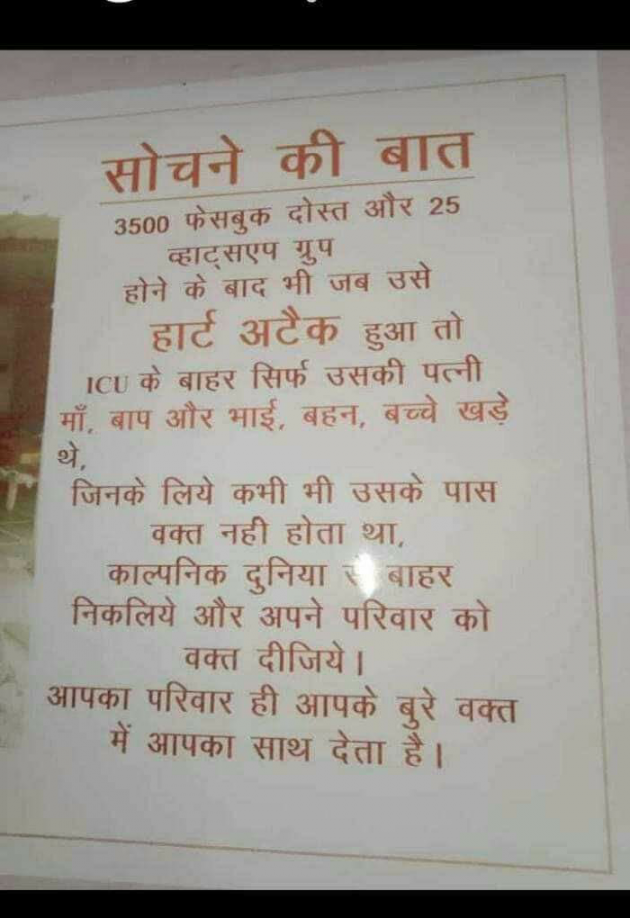 सोचने की बात
3500 फेसबुक दोस्त और 25
व्हाट्सएप ग्रुप
होने के बाद भी जब उसे
हार्ट अटैक हुआ तो
ICU के बाहर सिर्फ उसकी पत्नी
माँ, बाप और भाई, बहन, बच्चे खड़े
थे,
जिनके लिये कभी भी उसके पास
वक्त नही होता था,
काल्पनिक दुनिया बाहर
निकलिये और अपने परिवार को
वक्त दीजिये।
आपका परिवार ही आपके बुरे वक्त
में आपका साथ देता है।